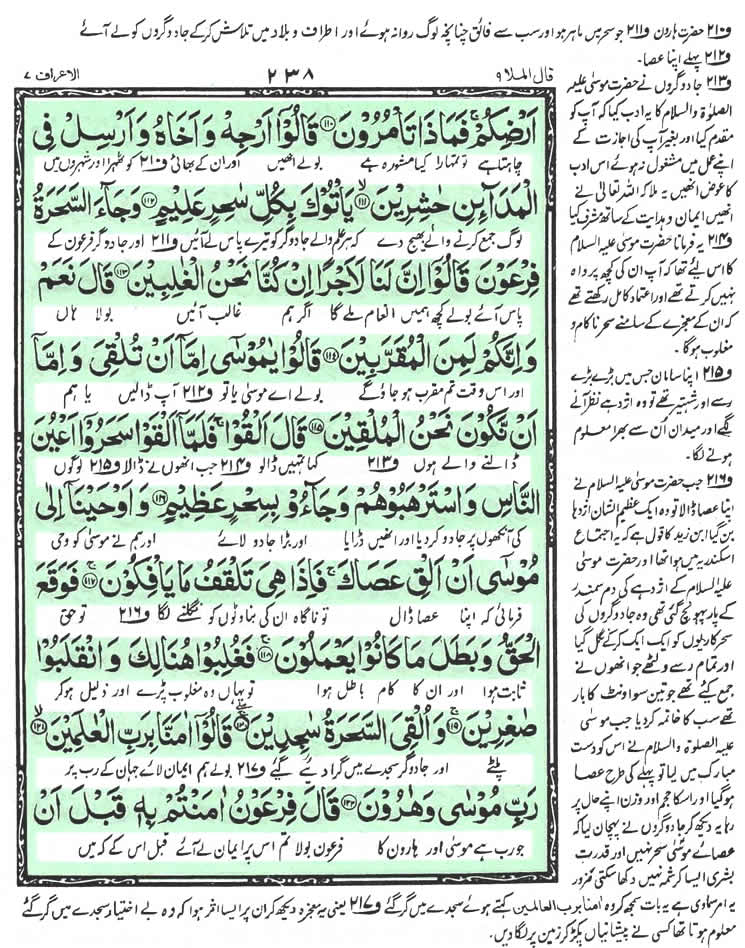 و۲۱۰ حضرت ہارون و۲۱۱ جو سحر میں ماہر ہو اور سب سے فائق چنانچہ لوگ روانہ ہوئے اور اطراف و بلاد میں تلاش کر کے جادوگروں کو لے آئے
و۲۱۲ پہلے اپنا عصا۔
قال الملا ۹
۲۳۸
الاعراف ۷
اَرْضِكُمْ ۚ فَمَاذَا تَاْمُرُوْنَ ﴿۱۱۰﴾ قَالُوْۤا اَرْجِهْ وَ اَخَاهُ وَ اَرْسِلْ فِی
چاہتا ہے تو تمہارا کیا مشورہ ہے بولے انھیں اور ان کے بھائی و۲۱۰ کو ٹھہرا اور شہروں میں
الْمَدَآىِٕنِ حٰشِرِیْنَ ﴿۱۱۱﴾ یَاْتُوْكَ بِكُلِّ سٰحِرٍ عَلِیْمٍ ﴿۱۱۲﴾ وَ جَآءَ السَّحَرَةُ
لوگ جمع کرنے والے بھیج دے کہ ہر علم والے جادوگر کو تیرے پاس لے آئیں و۲۱۱ اور جادوگر فرعون کے
فِرْعَوْنَ قَالُوْۤا اِنَّ لَنَا لَاَجْرًا اِنْ كُنَّا نَحْنُ الْغٰلِبِیْنَ ﴿۱۱۳﴾ قَالَ نَعَمْ
پاس آئے بولے کچھ ہمیں انعام ملے گا اگر ہم غالب آئیں بولا ہاں
وَ اِنَّكُمْ لَمِنَ الْمُقَرَّبِیْنَ ﴿۱۱۴﴾ قَالُوْا یٰمُوْسٰۤی اِمَّاۤ اَنْ تُلْقِیَ وَ اِمَّاۤ
اور اس وقت تم مقرب ہو جاؤ گے بولے اے موسیٰ یا تو و۲۱۲ آپ ڈالیں یا ہم
اَنْ نَّكُوْنَ نَحْنُ الْمُلْقِیْنَ ﴿۱۱۵﴾ قَالَ اَلْقُوْا ۚ فَلَمَّاۤ اَلْقَوْا سَحَرُوْۤا اَعْیُنَ
ڈالنے والے ہوں و۲۱۳ کہا تمہیں ڈالو و۲۱۴ جب انھوں نے ڈالا و۲۱۵ لوگوں
النَّاسِ وَ اسْتَرْهَبُوْهُمْ وَ جَآءُوْ بِسِحْرٍ عَظِیْمٍ ﴿۱۱۶﴾ وَ اَوْحَیْنَاۤ اِلٰی
کی آنکھوں پر جادو کر دیا اور انھیں ڈرایا اور بڑا جادو لائے اور ہم نے موسیٰ کو وحی
مُوْسٰۤی اَنْ اَلْقِ عَصَاكَ ۚ فَاِذَا هِیَ تَلْقَفُ مَا یَاْفِكُوْنَ ﴿۱۱۷﴾ فَوَقَعَ
فرمائی کہ اپنا عصا ڈال تو ناگاہ ان کی بناوٹوں کو نگلنے لگا و۲۱۶ تو حق
الْحَقُّ وَ بَطَلَ مَا كَانُوْا یَعْمَلُوْنَ ﴿۱۱۸﴾ فَغُلِبُوْا هُنَالِكَ وَ انْقَلَبُوْا
ثابت ہوا اور ان کا کام باطل ہوا تو یہاں وہ مغلوب پڑے اور ذلیل ہو کر
صٰغِرِیْنَ ﴿۱۱۹﴾ وَ اُلْقِیَ السَّحَرَةُ سٰجِدِیْنَ ﴿۱۲۰﴾ قَالُوْۤا اٰمَنَّا بِرَبِّ الْعٰلَمِیْنَ ﴿۱۲۱﴾
پلٹے اور جادوگر سجدے میں گرا دیے گئے و۲۱۷ بولے ہم ایمان لائے جہان کے رب پر
رَبِّ مُوْسٰی وَ هٰرُوْنَ ﴿۱۲۲﴾ قَالَ فِرْعَوْنُ اٰمَنْتُمْ بِهٖ قَبْلَ اَنْ
جو رب ہے موسیٰ اور ہارون کا فرعون بولا تم اس پر ایمان لے آئے قبل اس کے کہ میں
و۲۱۳ جادوگروں نے حضرت موسیٰ علیہ
الصلوٰۃ والسلام کا یہ ادب کیا کہ آپ کو
مقدم کیا اور بغیر آپ کی اجازت کے
اپنے عمل میں مشغول نہ ہوئے اس ادب
کا عوض انھیں یہ ملا کہ اللہ تعالیٰ نے
انھیں ایمان و ہدایت کے ساتھ مشرف کیا
و۲۱۴ یہ فرمانا حضرت موسیٰ علیہ السلام
کا اس لئے تھا کہ آپ ان کی کچھ پرواہ
نہیں کرتے تھے اور اعتماد کامل رکھتے تھے
کہ ان کے معجزے کے سامنے سحر ناکام و
مغلوب ہوگا۔
و۲۱۵ اپنا سامان جس میں بڑے بڑے
رسے اور شہتیر تھے تو وہ اژدہے نظر آنے
لگے اور میدان اُن سے بھرا معلوم
ہونے لگا۔
و۲۱۶ جب حضرت موسیٰ علیہ السلام نے
اپنا عصا ڈالا تو وہ ایک عظیم الشان اژدہا
بن گیا ابن زید کا قول ہے کہ یہ اجتماع
اسکندریہ میں ہوا تھا اور حضرت موسیٰ
علیہ السلام کے اژدہے کی دم سمندر
کے پار پہونچ گئی تھی وہ جادوگروں کی
سحرکاریوں کو ایک ایک کر کے نگل گیا
اور تمام رسے و لٹھے جو انھوں نے
جمع کئے تھے جو تین سو اونٹ کا بار
تھے سب کا خاتمہ کر دیا جب موسیٰ
علیہ الصلوٰۃ والسلام نے اس کو دست
مبارک میں لیا تو پہلے کی طرح عصا
ہو گیا اور اسکا حجم اور وزن اپنے حال پر
رہا یہ دیکھ کر جادوگروں نے پہچان لیا کہ
عصائے موسیٰ سحر نہیں اور قدرت
بشری ایسا کرشمہ نہیں دکھا سکتی ضرور
یہ امر سماوی ہے یہ بات سمجھ کر وہ امنا برب العالمین کہتے ہوئے سجدے میں گر گئے و۲۱۷ یعنی یہ معجزہ دیکھ کر ان پر ایسا اثر ہوا کہ وہ بے اختیار سجدے میں گر گئے
معلوم ہوتا تھا کسی نے پیشانیاں پکڑ کر زمین پر لگا دیں۔